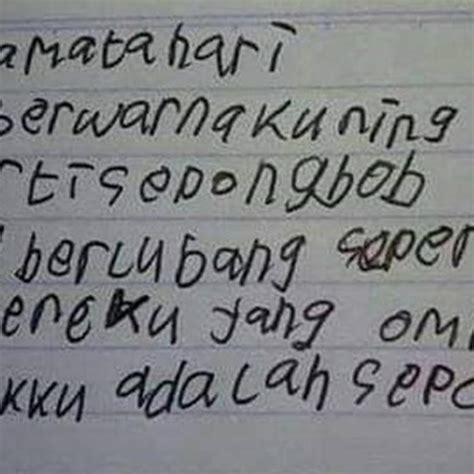 amatahari
berwarnakuning
rtisepongbob
berlubang seper
enekku yang om
kku adalah sepo